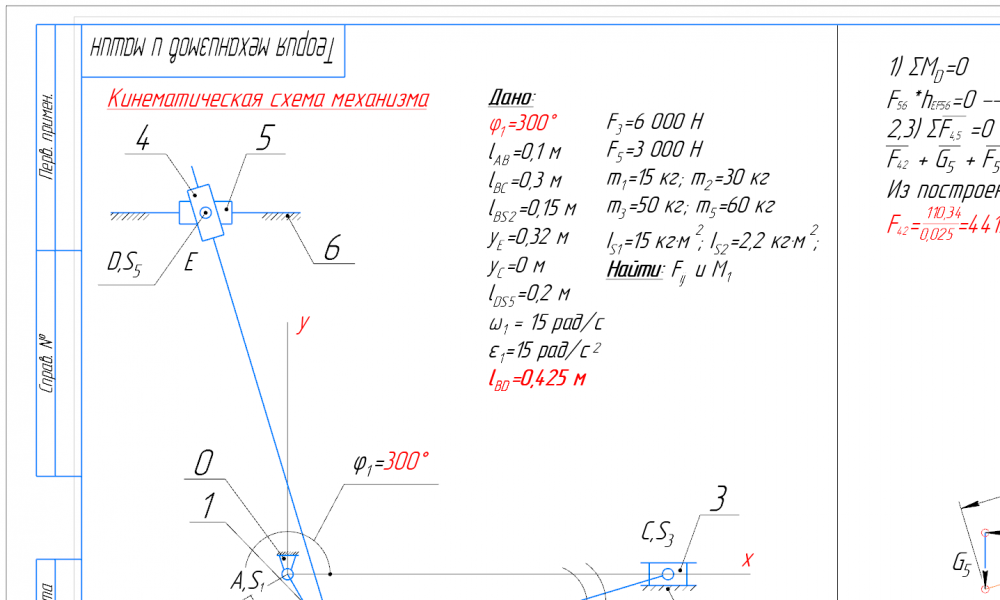 Теория механизмов и машин
Перв. примен.
Справ. №
Кинематическая схема механизма
4
5
6
D,S5
E
y
0
1
φ1=300°
A,S1
C,S3
3
x
Дано:
φ1=300°
lAB=0,1 м
lBC=0,3 м
lBS2=0,15 м
yE=0,32 м
yC=0 м
lDS5=0,2 м
ω1 = 15 рад/с
ε1=15 рад/с²
lBD=0,425 м
F3=6 000 Н
F5=3 000 Н
m1=15 кг; m2=30 кг
m3=50 кг; m5=60 кг
IS1=15 кг·м²; IS2=2,2 кг·м²;
Найти: Fij и M1
1) ΣMD=0
F56 *hEF56=0 --
2,3) ΣF4,5 =0
F42 + G5 + F5
Из построен
F42=110,34/0,025=441
G5